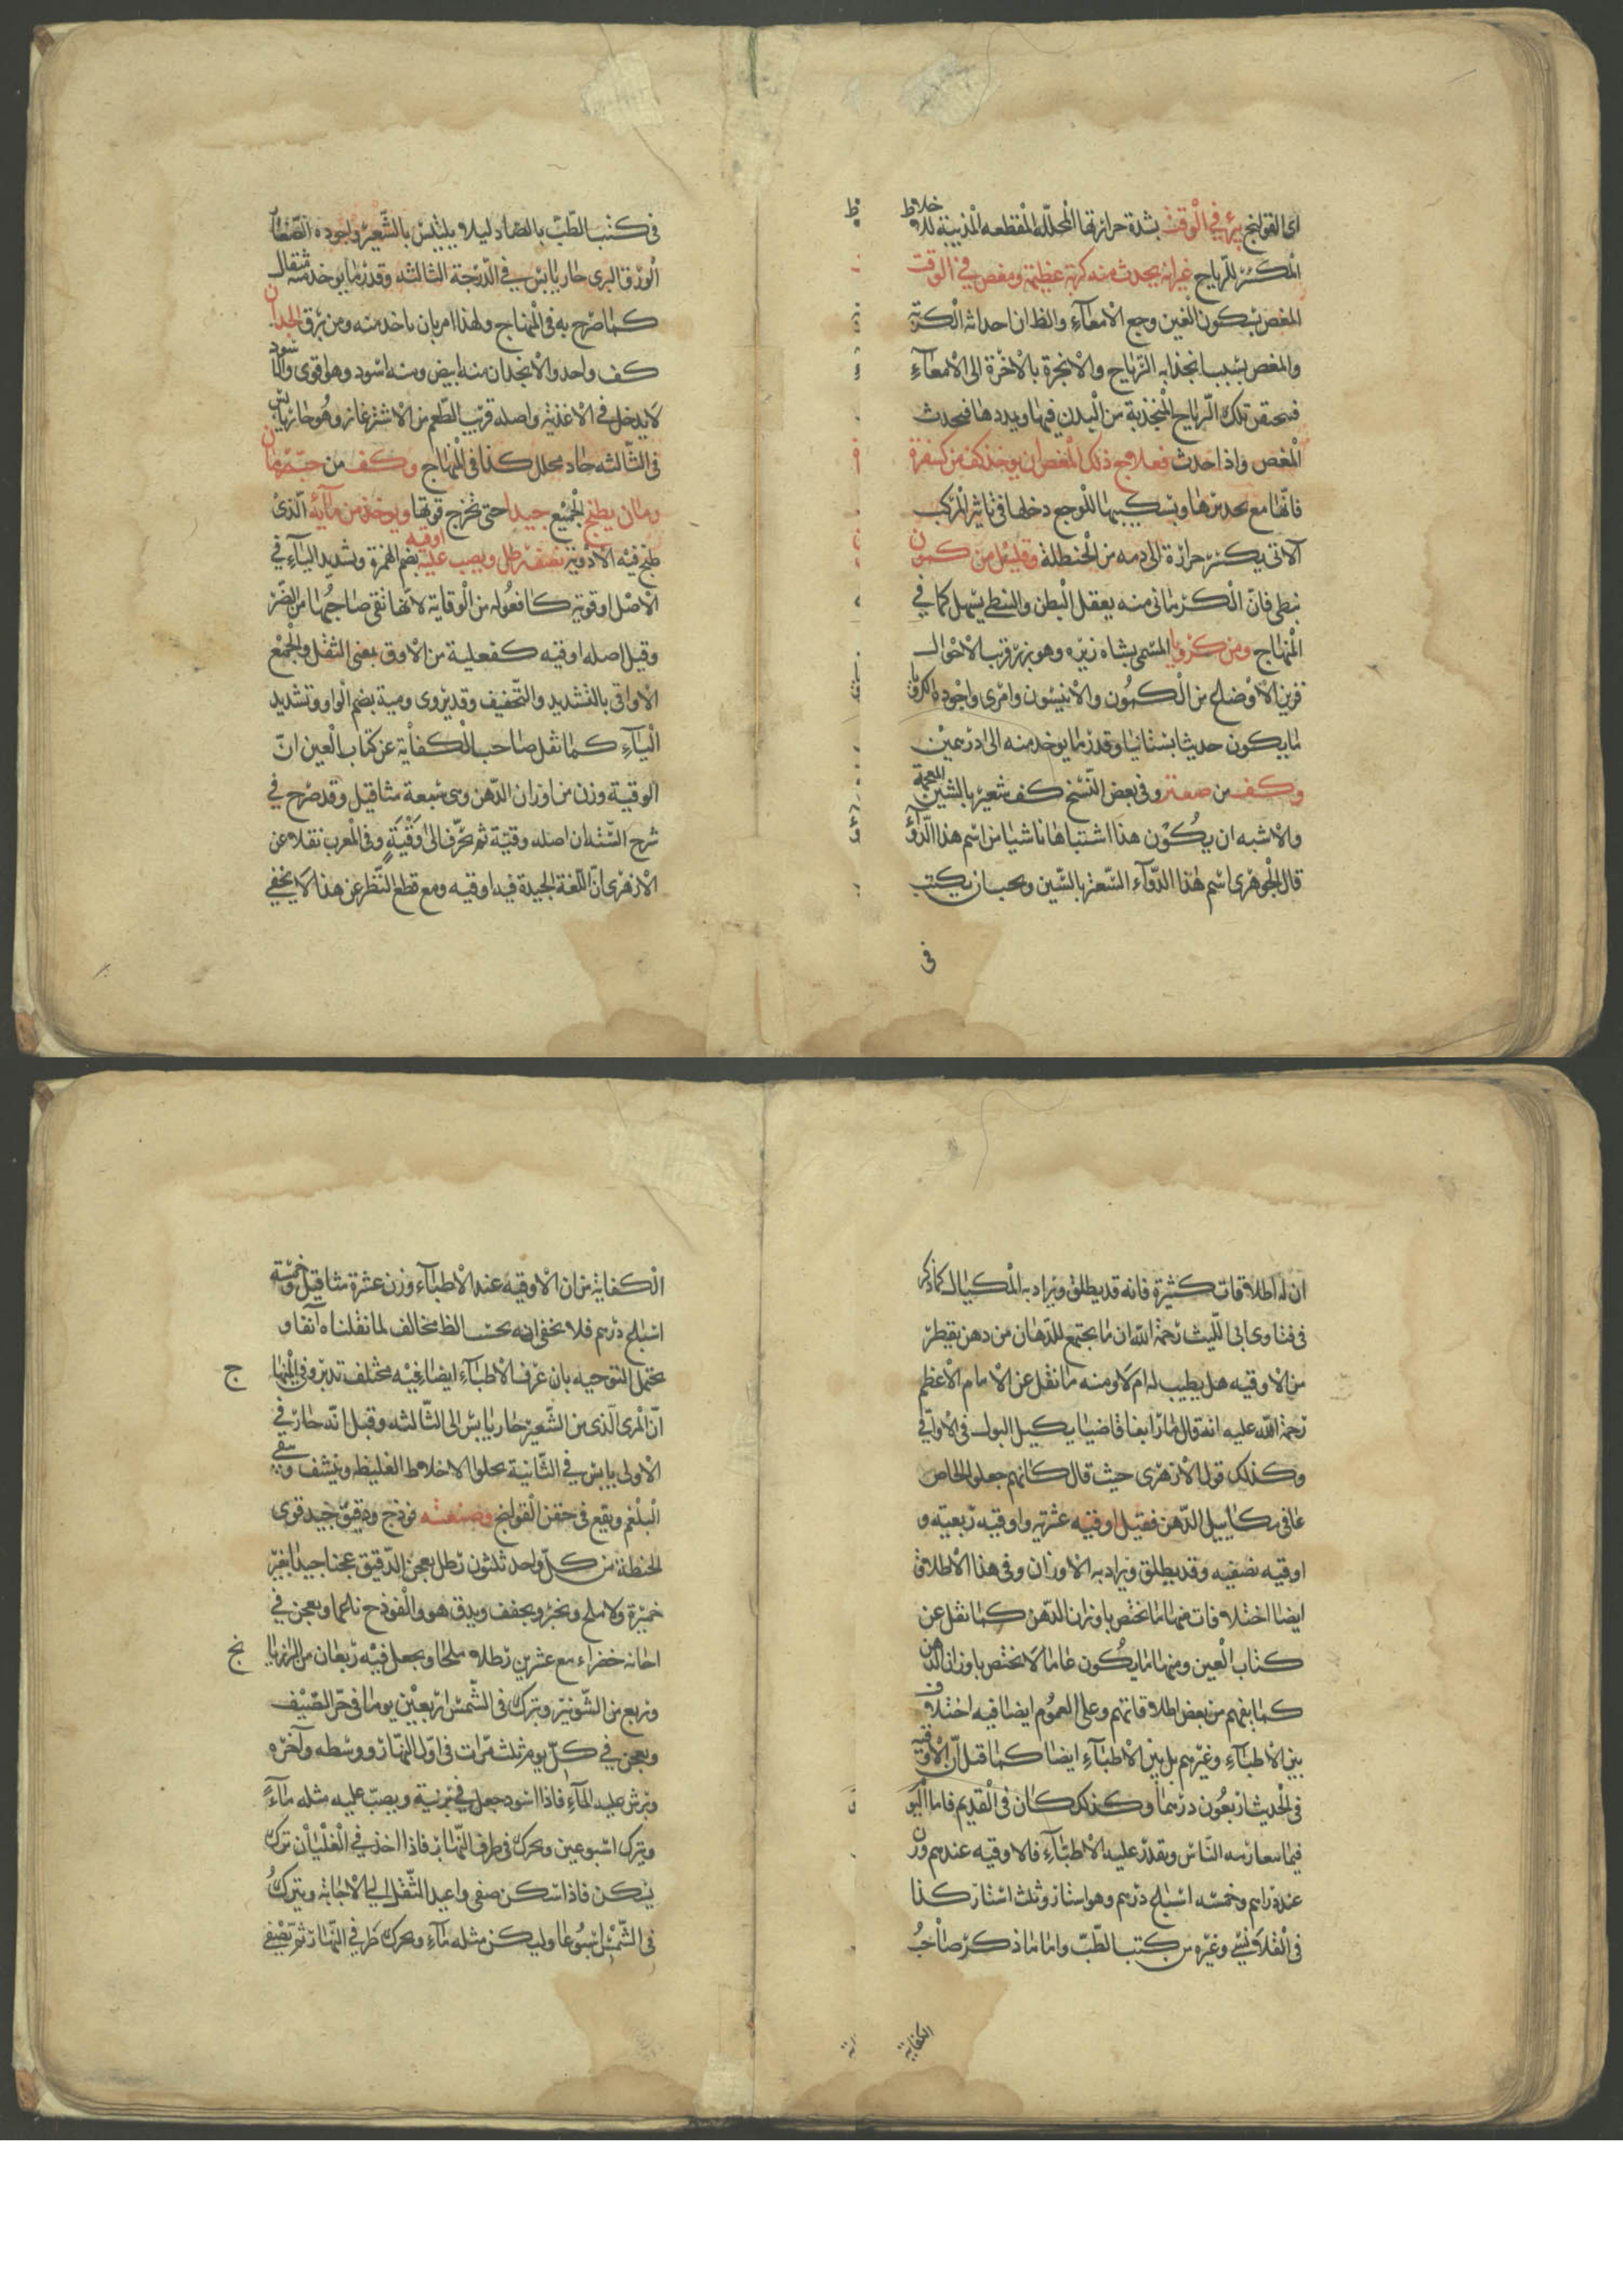 اى القولنج يبرئ فى الوقت بشدة حرارتها المحللة المقطعه المذيبة للاخلاط
المكسّر للرياح غير انه يحدث منه كربة عظيمة ومغص فى الوقت
المغص بسكون الغين وجع الامعآء والظ ان احداثه الكربة
والمغص بسبب انجذابه الرياح والابخرة بالاخرة الى الامعآء
فيحتقن تلك الرياح المنجذبة من البدن فيها ويمددها فيحدث
المغص واذا حدث فعلاج ذلك المغص ان يوخذ كف من كسفرة
فانها مع تخديرها وتسكينها للوجع دخلها فى تاثير المركب
الآتى يكسر حرارة الى دمه من الحنظلة وقليل من كمون
نبطى فان الكرمانى منه يعقل البطن والنبطى يسهل كما فى
المنهاج ومن كرويا المسمى بشاه زيره وهو بزر قريب الاحوال
قرين الاوضاع من الكمون والانيسون وامرى واجوده الكرويا
ما يكون حديثا بستانيا وقدر ما يوخذ منه الى درهمين
وكف من صعتر وفى بعض النسخ كف شعير بالشين المعجمة
والاشبه ان يكون هذا اشتباها ناشيا من اسم هذا الدوآء
قال الجوهرى اسم هذا الدوآء السعتر بالسين ويجب ان يكتب
فى
فى كتب الطب بالصاد ليلا يلتبس بالشعير واجوده الصغار
الورق البرى حار يابس فى الدرجة الثالثه وقدر ما يوخذ منه مثقال
كما صرح به فى المنهاج ولهذا امر بان ياخذ منه ومن برق الجدان
كف واحد والانجدان منه ابيض ومنه اسود وهو اقوى والاسود
لا يدخل فى الاغذية واصله قريب الطعم من الاشترغاز وهو حار يابس
فى الثالثه حاد محلل كذا فى المنهاج وكف من حب رمان
رمان يطبخ الجميع جيدا حتى تخرج قوتها ويوخذ من مآئه الذى
طبخ فيه الادوية نصف رطل ويصب عليه اوقيه بضم الهمزة وتشديد اليآء فى
الاصل اوقوية كافعوله من الوقاية لانها تقى صاحبها من الضرّ
وقيل اصله اوقيه كفعلية من الاوق بمعنى الثقل والجمع
الاواقى بالتشديد والتخفيف وقد يروى وقية بضم الواو وتشديد
اليآء كما نقل صاحب الكفاية عن كتاب العين انّ
الوقية وزن من اوزان الدهن وهى سبعة مثاقيل وقد صرح فى
شرح السّنّه ان اصله وقيّة ثم تحرّف الى وَقْيَةٍ وفى المغرب نقلا عن
الازهرى انّ اللغة الجيدة فيه اوقيه ومع قطع النظر عن هذا لا يخفى
ان له اطلاقات كثيرة فانه قد يطلق ويراد به المكيال كما ذكر
فى فتاوى ابى الليث رحمة الله ان ما يجتمع للدهان من دهن يقطر
من الاوقيه هل يطيب له ام لا ومنه ما نقل عن الامام الاعظم
رحمة الله عليه انه قال ما راينا قاضيا يكيل البول فى الاواقى
وكذلك قول الازهرى حيث قال كانهم جعلوا الخاص
عاما فى مكاييل الدهن فقيل اوقيه عشرته واوقيه ربعيته و
اوقيه نصفيه وقد يطلق ويراد به الاوزان وفى هذا الاطلاق
ايضا اختلافات فمنها ما يختص باوزان الدهن كما نقل عن
كتاب العين ومنها ما يكون عاما لا يختص باوزان الدهن
كما يفهم من بعض اطلاقاتهم وعلى العموم ايضا فيه اختلاف
بين الاطبآء وغيرهم بل بين الاطبآء ايضا كما قيل ان الاوقيه
فى الحديث اربعون درهما وكذلك كان فى القديم فاما اليوم
فيما يتعارفه الناس ويقدر عليه الاطبآء فالاوقيه عندهم وزن
عشرة دراهم وخمسه اسباع درهم وهو استار وثلث استار كذا
فى القلانسى وغيره من كتب الطبّ واما ما ذكره صاحب
الكفاية
الكفاية من ان الاوقيه عند الاطبآء وزن عشرة مثاقيل وخمسة
اسباع درهم فلا يخفى انه بحسب الظ مخالف لما نقلناه آنفا و
يحتمل التوجيه بان عرف الاطبآء ايضا فيه مختلف تدبر وفى المنها
ج
انّ المرى الذى من الشعير حار يابس الى الثالثه وقيل انّه حار فى
الاولى يابس فى الثانية يجلو الاخلاط الغليظه وينشف وينقى
البلغم ويقع فى حقن القولنج وصنعته فوذج ودقيق جيد قوى
الحنطة من كل واحد ثلثون رطل يعجن الدقيق عجنا جيدا بغير
خميرة ولا ملح ويخبز ويجفف ويدق هو والفوذج ناعما ويعجن فى
اجانه خضراء مع عشرين رطلا ملحا ويجعل فيه ربعان من الرازيا
نج
وربع من الشونيز ويترك فى الشمس اربعين يوما فى حرّ الصيف
ويعجن فى كل يوم ثلث مرّات فى اول النهار ووسطه وآخره
ويرش عليه المآء فاذا اسود جعل فى برنية ويصبّ عليه مثله مآءً
ويترك اسبوعين ويحرك فى طرف النهار فاذا اخذ فى الغليان ترك
يسكن فاذا سكن صفى واعيد الثقل الى الاجانة ويترك
فى الشمس اسبوعا وليكن مثله مآء ويحرك طرفى النهار ثم يصفى